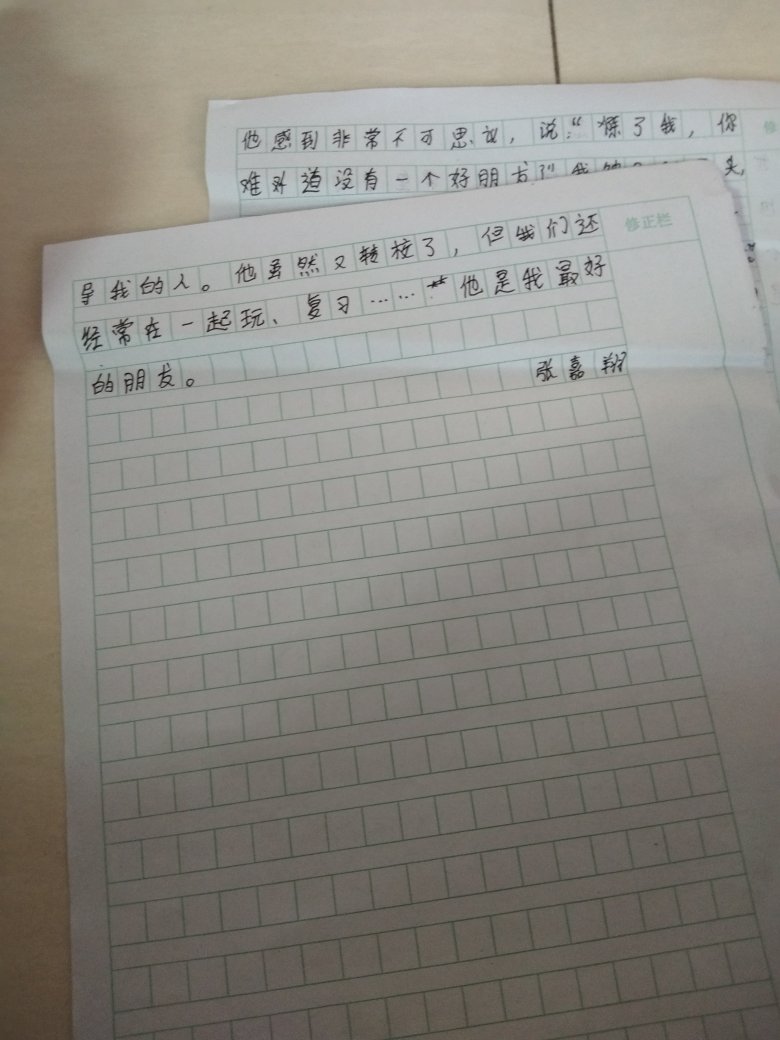 他感到非常不可思议，说："除了我，你
难道没有一个好朋友?"我
头，
修正栏
导我的人。他虽然又转校了，但我们还
经常在一起玩、复习……他是我最好
的朋友。
张嘉翔